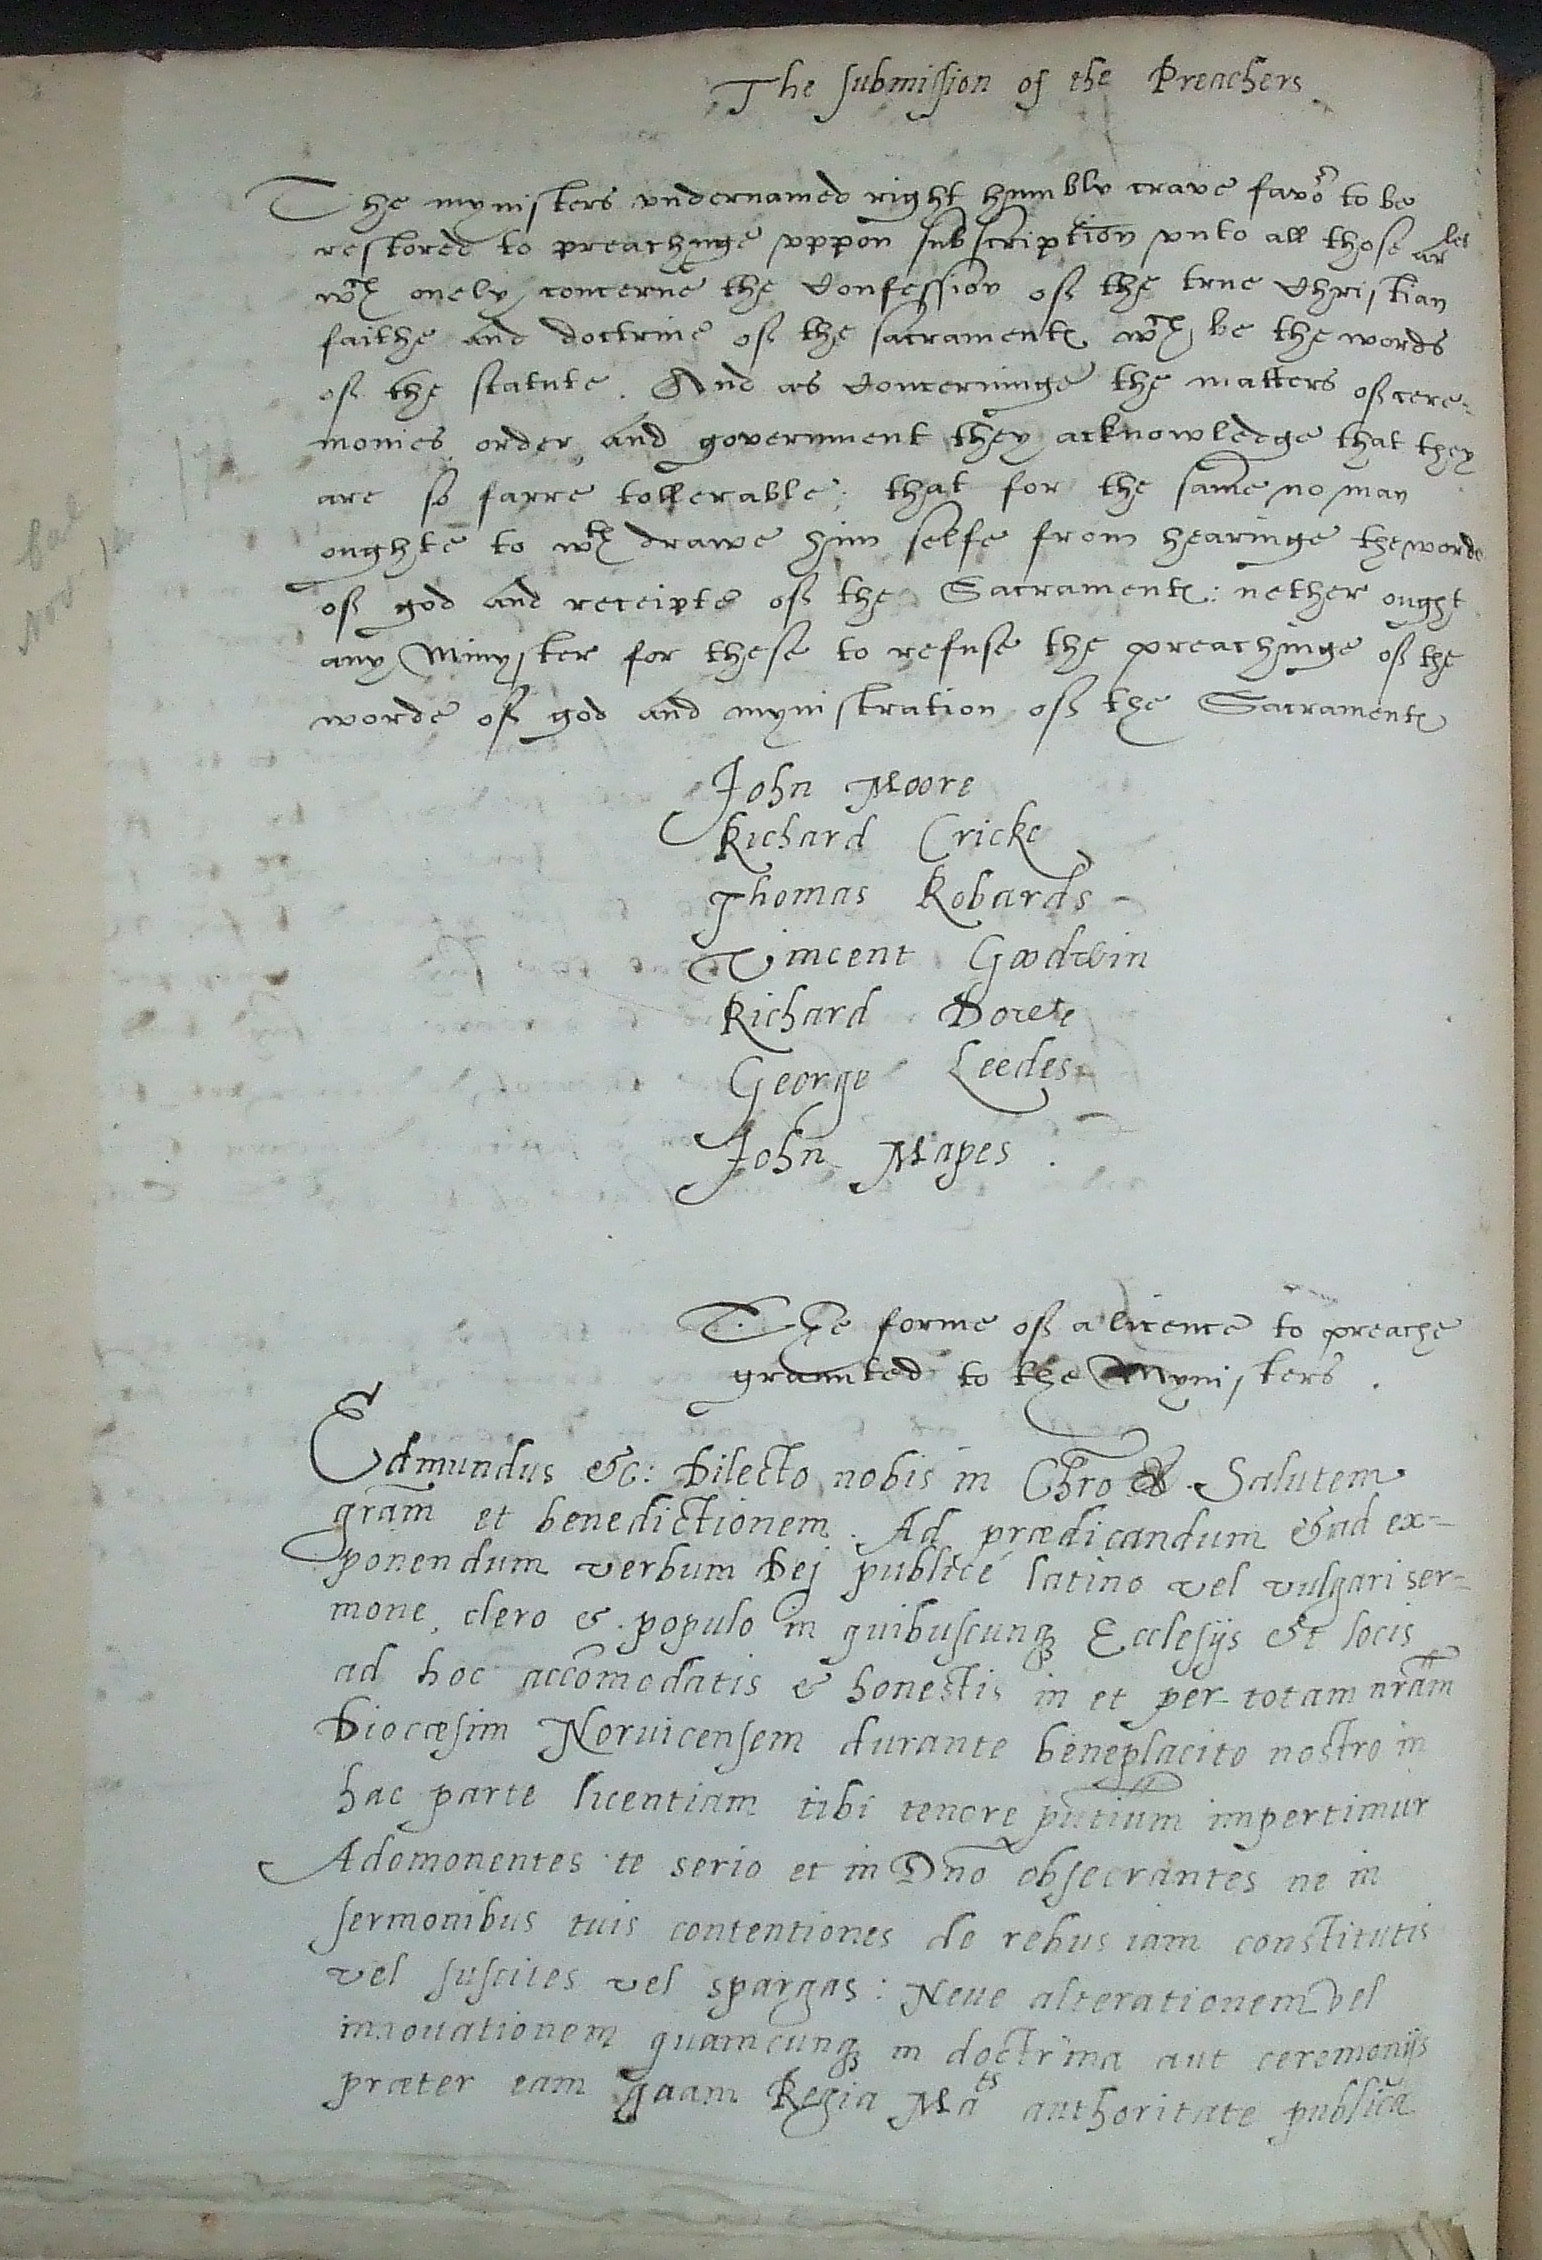 The submission of the Preachers
The mynisters vndernamed right humbly crave favor to be
restored to preachynge vppon subscription vnto all those ar
les
wch onely concerne the Confession of the true Christian
faithe and doctrine of the sacramentes wch be the words
of the statute. And as Concerninge the matters of cere-
monies order, and government they acknowledge that they
are so farre tollerable, that for the same no man
oughte to wth drawe him selfe from hearinge the worde
of god and receipte of the Sacramentes: nether ought
any Minyster for these to refuse the preachinge of the
worde of god and mynistration of the Sacramentes
John Moore
Richard Cricke
Thomas Robards
Vincent Goodwin
Richard Dowe
George Leedes
John Mapes.
The forme of a licence to preache
graunted to the Mynisters.
Edmundus &c: Dilecto nobis in Chro & Salutem
gram et benedictionem. Ad prædicandum & ad ex-
ponendum verbum Dej publicé latino vel vulgari ser-
mone, clero & populo in quibuscunq Ecclesijs et locis
ad hoc accomodatis & honestis in et per totam nram
Diocæsim Noruicensem durante beneplacito nostro in
hac parte licentiam tibi tenore pntium impertimur
Adomonentes te serio et in Dno obsecrantes ne in
sermonibus tuis contentiones de rebus iam constitutis
vel suscites vel spargas: Neue alterationem vel
innouationem quamcunq in doctrina aut ceremonijs
præter eam quam Regia Mats authoritate publica